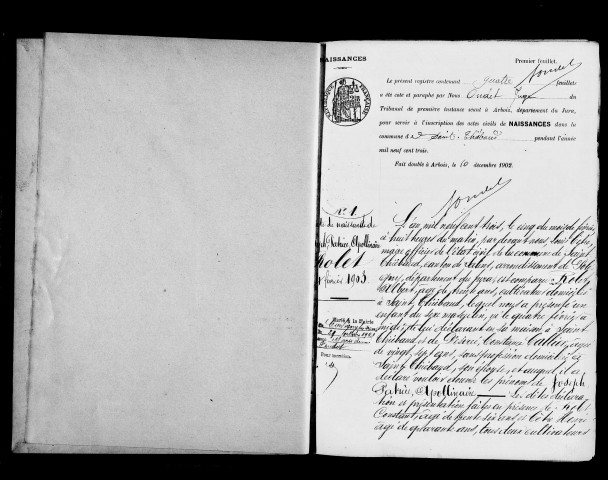 NAISSANCES
Premier feuillet.
Le présent registre contenant quatre feuillets
a été coté et paraphé par Nous Juge du
Tribunal de première instance séant à Arbois, département du Jura,
pour servir à l'inscription des actes civils de NAISSANCES dans la
commune de Saint-Thiébaud pendant l'année
mil neuf cent trois.
Fait double à Arbois, le 10 décembre 1902.
REPUBLIQUE FRANÇAISE
N° 1
de naissance de
Joseph Patrice Apollinaire
Rolet
février 1903
Marié à la Mairie
Pour mention.
L'an mil neuf cent trois, le cinq du mois de février
à huit heures du matin, par devant nous,
maire officier de l'état civil de la commune de Saint
Thiébaud, canton de Salins, arrondissement de Poli
gny, département du Jura, est comparu Rolet
Albert, âgé de trente ans, cultivateur domicilié
à Saint Thiébaud, lequel nous a présenté un
enfant du sexe masculin, né le quatre février à
midi, de lui déclarant en sa maison à Saint
Thiébaud et de Désirée, Constance âgée
de vingt sept ans, sans profession domiciliée à
Saint Thiébaud, son épouse, et auquel il a
déclaré vouloir donner les prénoms de Joseph
Patrice, Apollinaire. Les dites déclara
tion et présentation faites en présence de Rolet
Constant, âgé de trente six ans, et de
âgé de quarante ans, tous deux cultivateurs